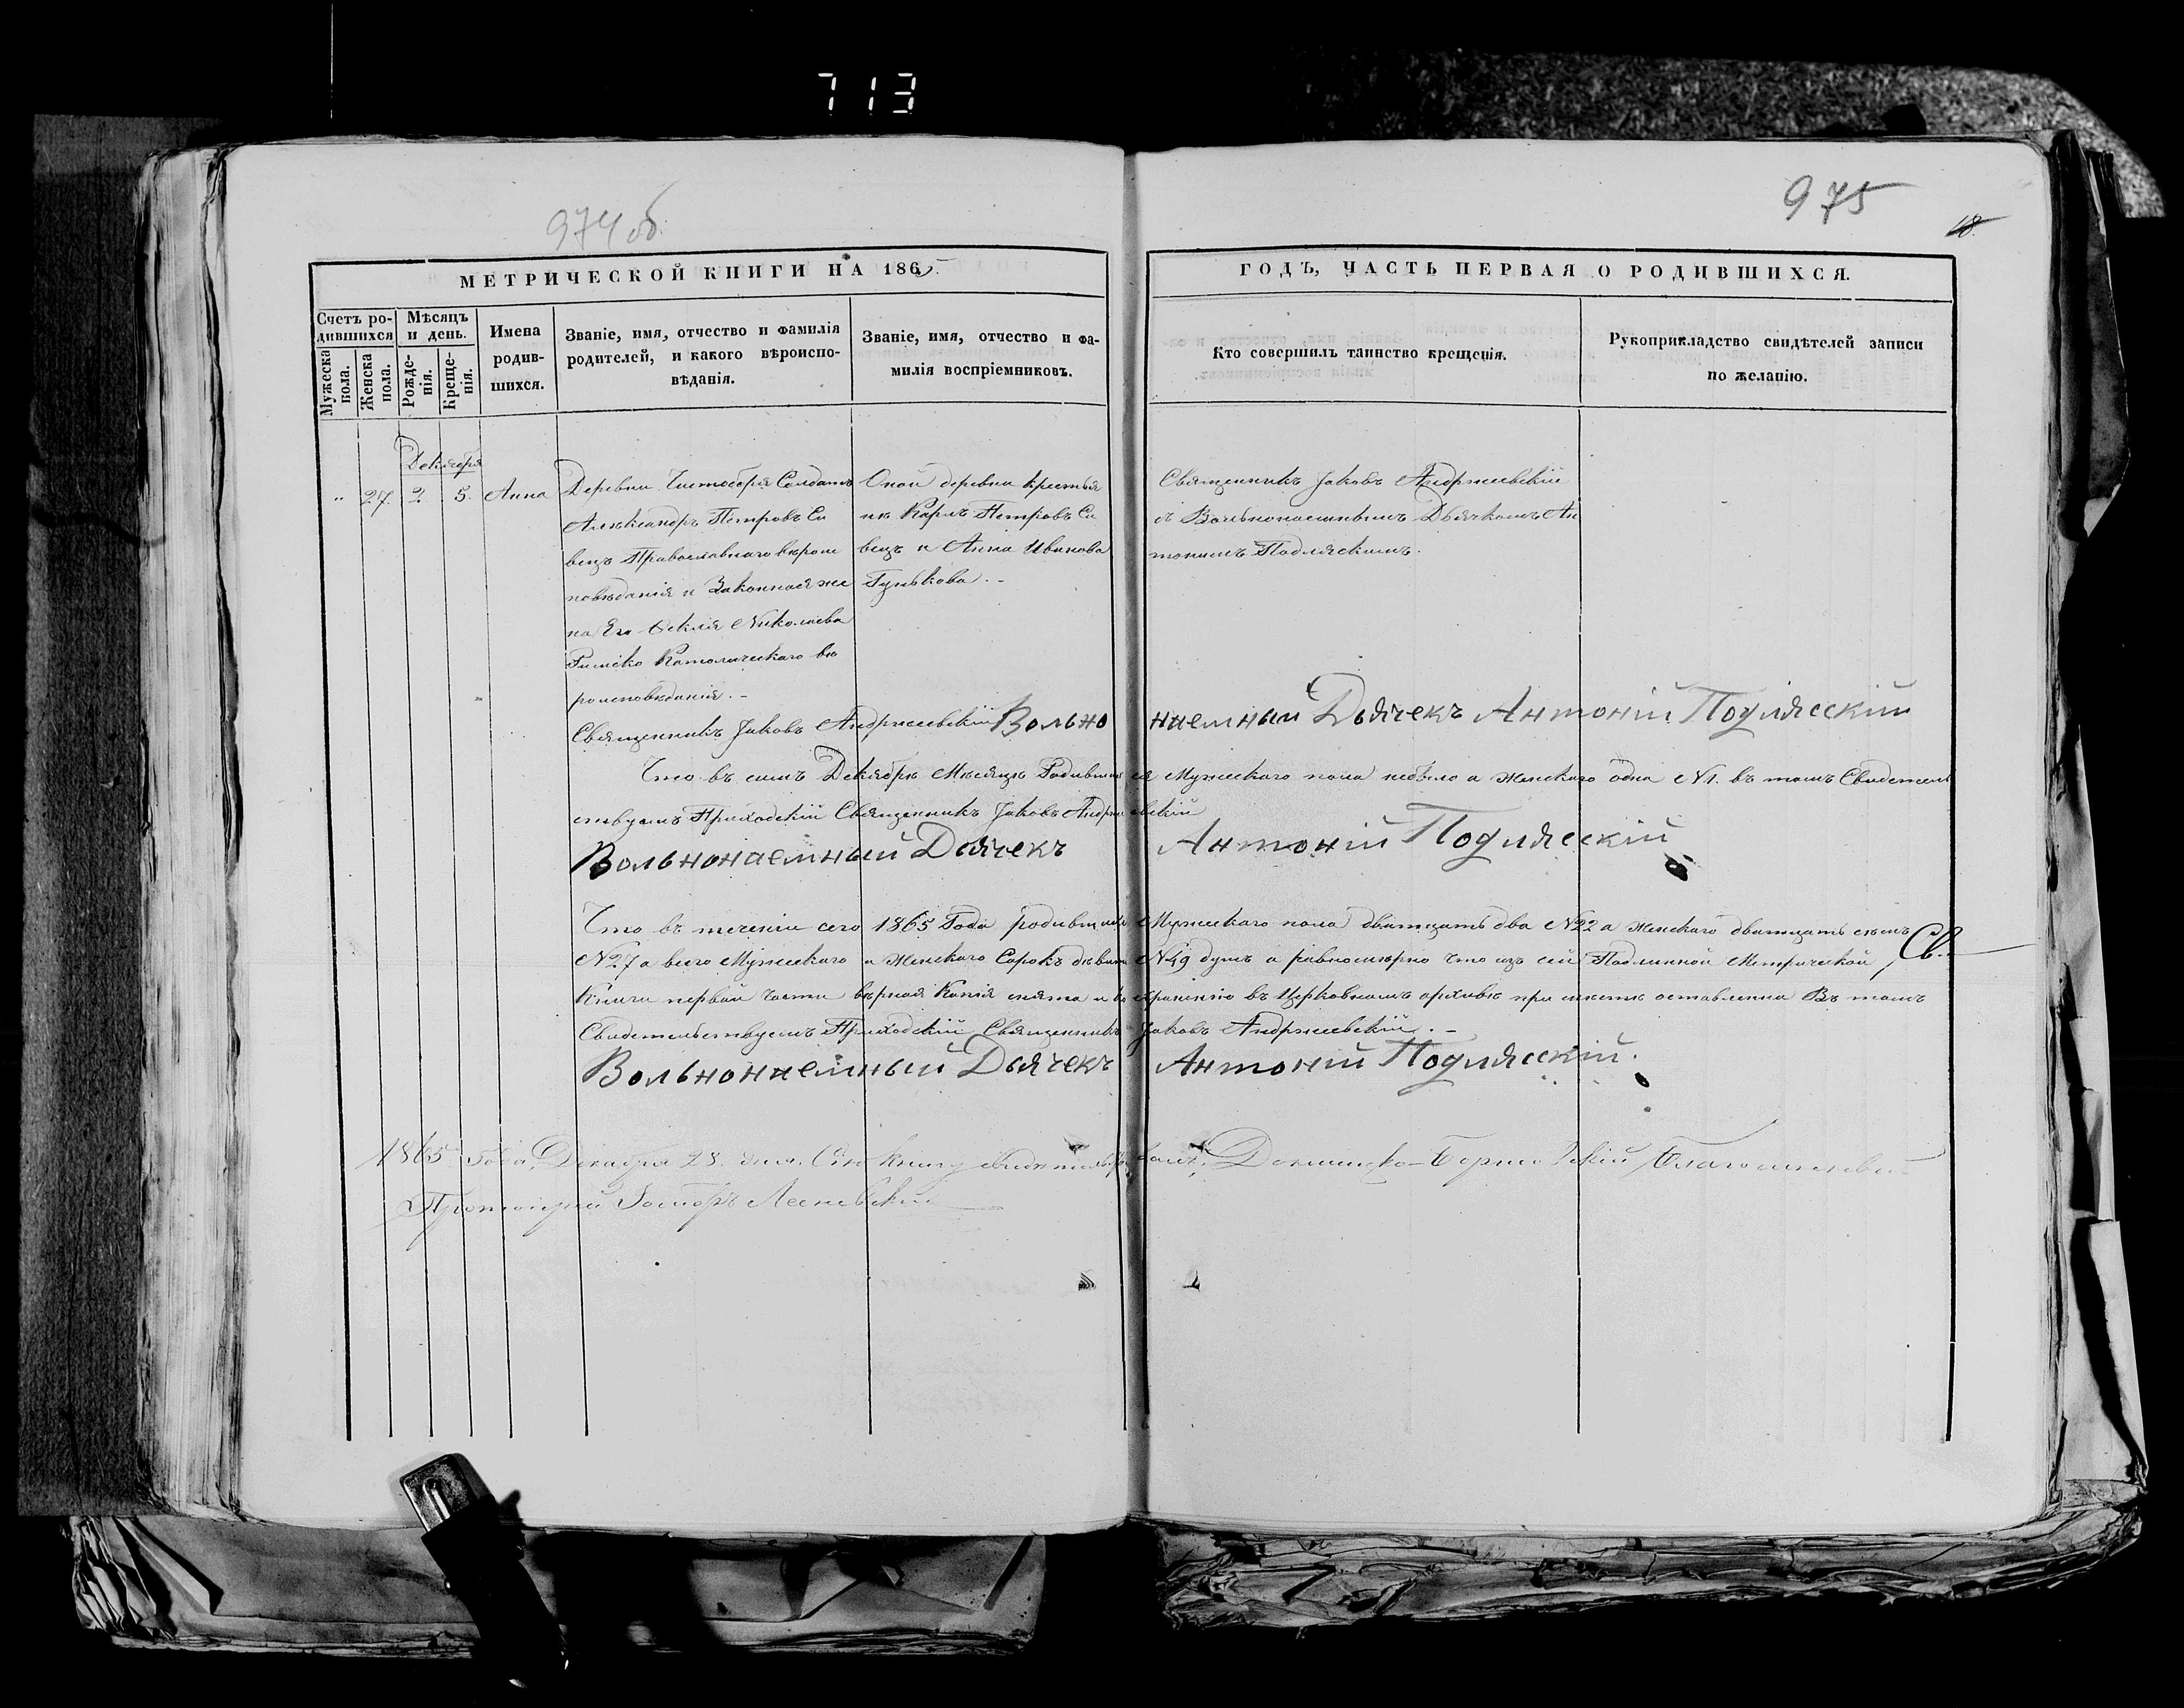 713
974 об.
975
18
МЕТРИЧЕСКОЙ КНИГИ НА 1865
ГОДЪ, ЧАСТЬ ПЕРВАЯ О РОДИВШИХСЯ.
Счетъ ро-
дившихся
Мужеска
пола.
Женска
пола.
Мѣсяцъ
и день.
Рожде-
нія.
Креще-
нія.
Имена
родив-
шихся.
Званіе, имя, отчество и фамилія
родителей, и какого вѣроиспо-
вѣданія.
Званіе, имя, отчество и фа-
милія воспріемниковъ.
Кто совершилъ таинство крещенія.
Рукоприкладство свидѣтелей записи
по желанію.
Декабря
" 27. 2. 5. Анна
Деревни Чистобѣря Солдатъ
Александръ Петровъ Си
вецъ Православнаго вѣрои
повѣданія и Законная же
на Его Ѳекля Николаева
Римско Католическаго вѣ
роисповѣданія. -
Оной деревни крестья
не Карлъ Петровъ Си
вецъ и Анна Иванова
Гунькова. -
Священникъ Іаковъ Андржеевскій
съ Вольнонаемнымъ Дьячкомъ Ан
тониемъ Подляскимъ.
Священникъ Іаковъ Андржеевскій Вольно наемный Дьячекъ Антоній Подлясскій
Что въ семъ Декабрѣ Мѣсяцѣ Родившихся Мужескаго пола небыло а женскаго одна №1. въ томъ Свидетель
ствуемъ Приходскій Священникъ Іаковъ Андржеевскій
Вольнонаемный Дьячекъ Антоній Подлясскій
Что въ теченіи сего 1865 Года родившихся Мужескаго пола дватцать два №22 а женскаго дватцать семь
№27 а всего Мужескаго и Женскаго Сорокъ девять №49 душъ а равномѣрно что изъ сей Подлинной Метрической Св.
Книги первой части вѣрная Копія снята и къ храненію въ Церковномъ архивѣ при мѣстѣ оставленна Въ томъ
Свидетельствуемъ Приходскій Священникъ Іаковъ Андржеевскій. -
Вольнонаемный Дьячекъ Антоній Подлясскій.
1865 года, Декабря 28 дня. Сію книгу свидѣтельствовалъ, Докшицко-Борисовскій Благочинный
Протоіерей